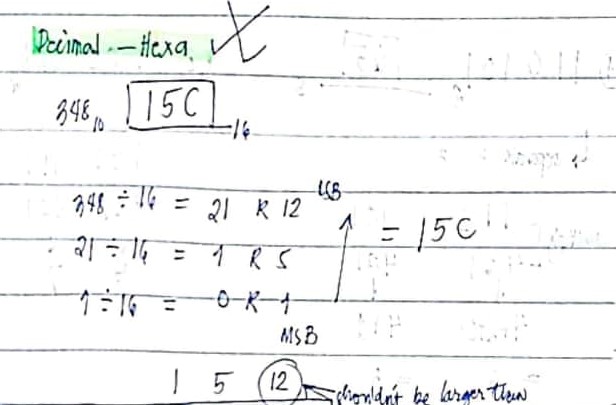 Decimal - Hexa.
348₁₀ 15C ₁₆
348 ÷ 16 = 21 R 12 LSB
21 ÷ 16 = 1 R 5
= 15C
1 ÷ 16 = 0 R 1
MSB
1 5 12 shouldn't be larger than